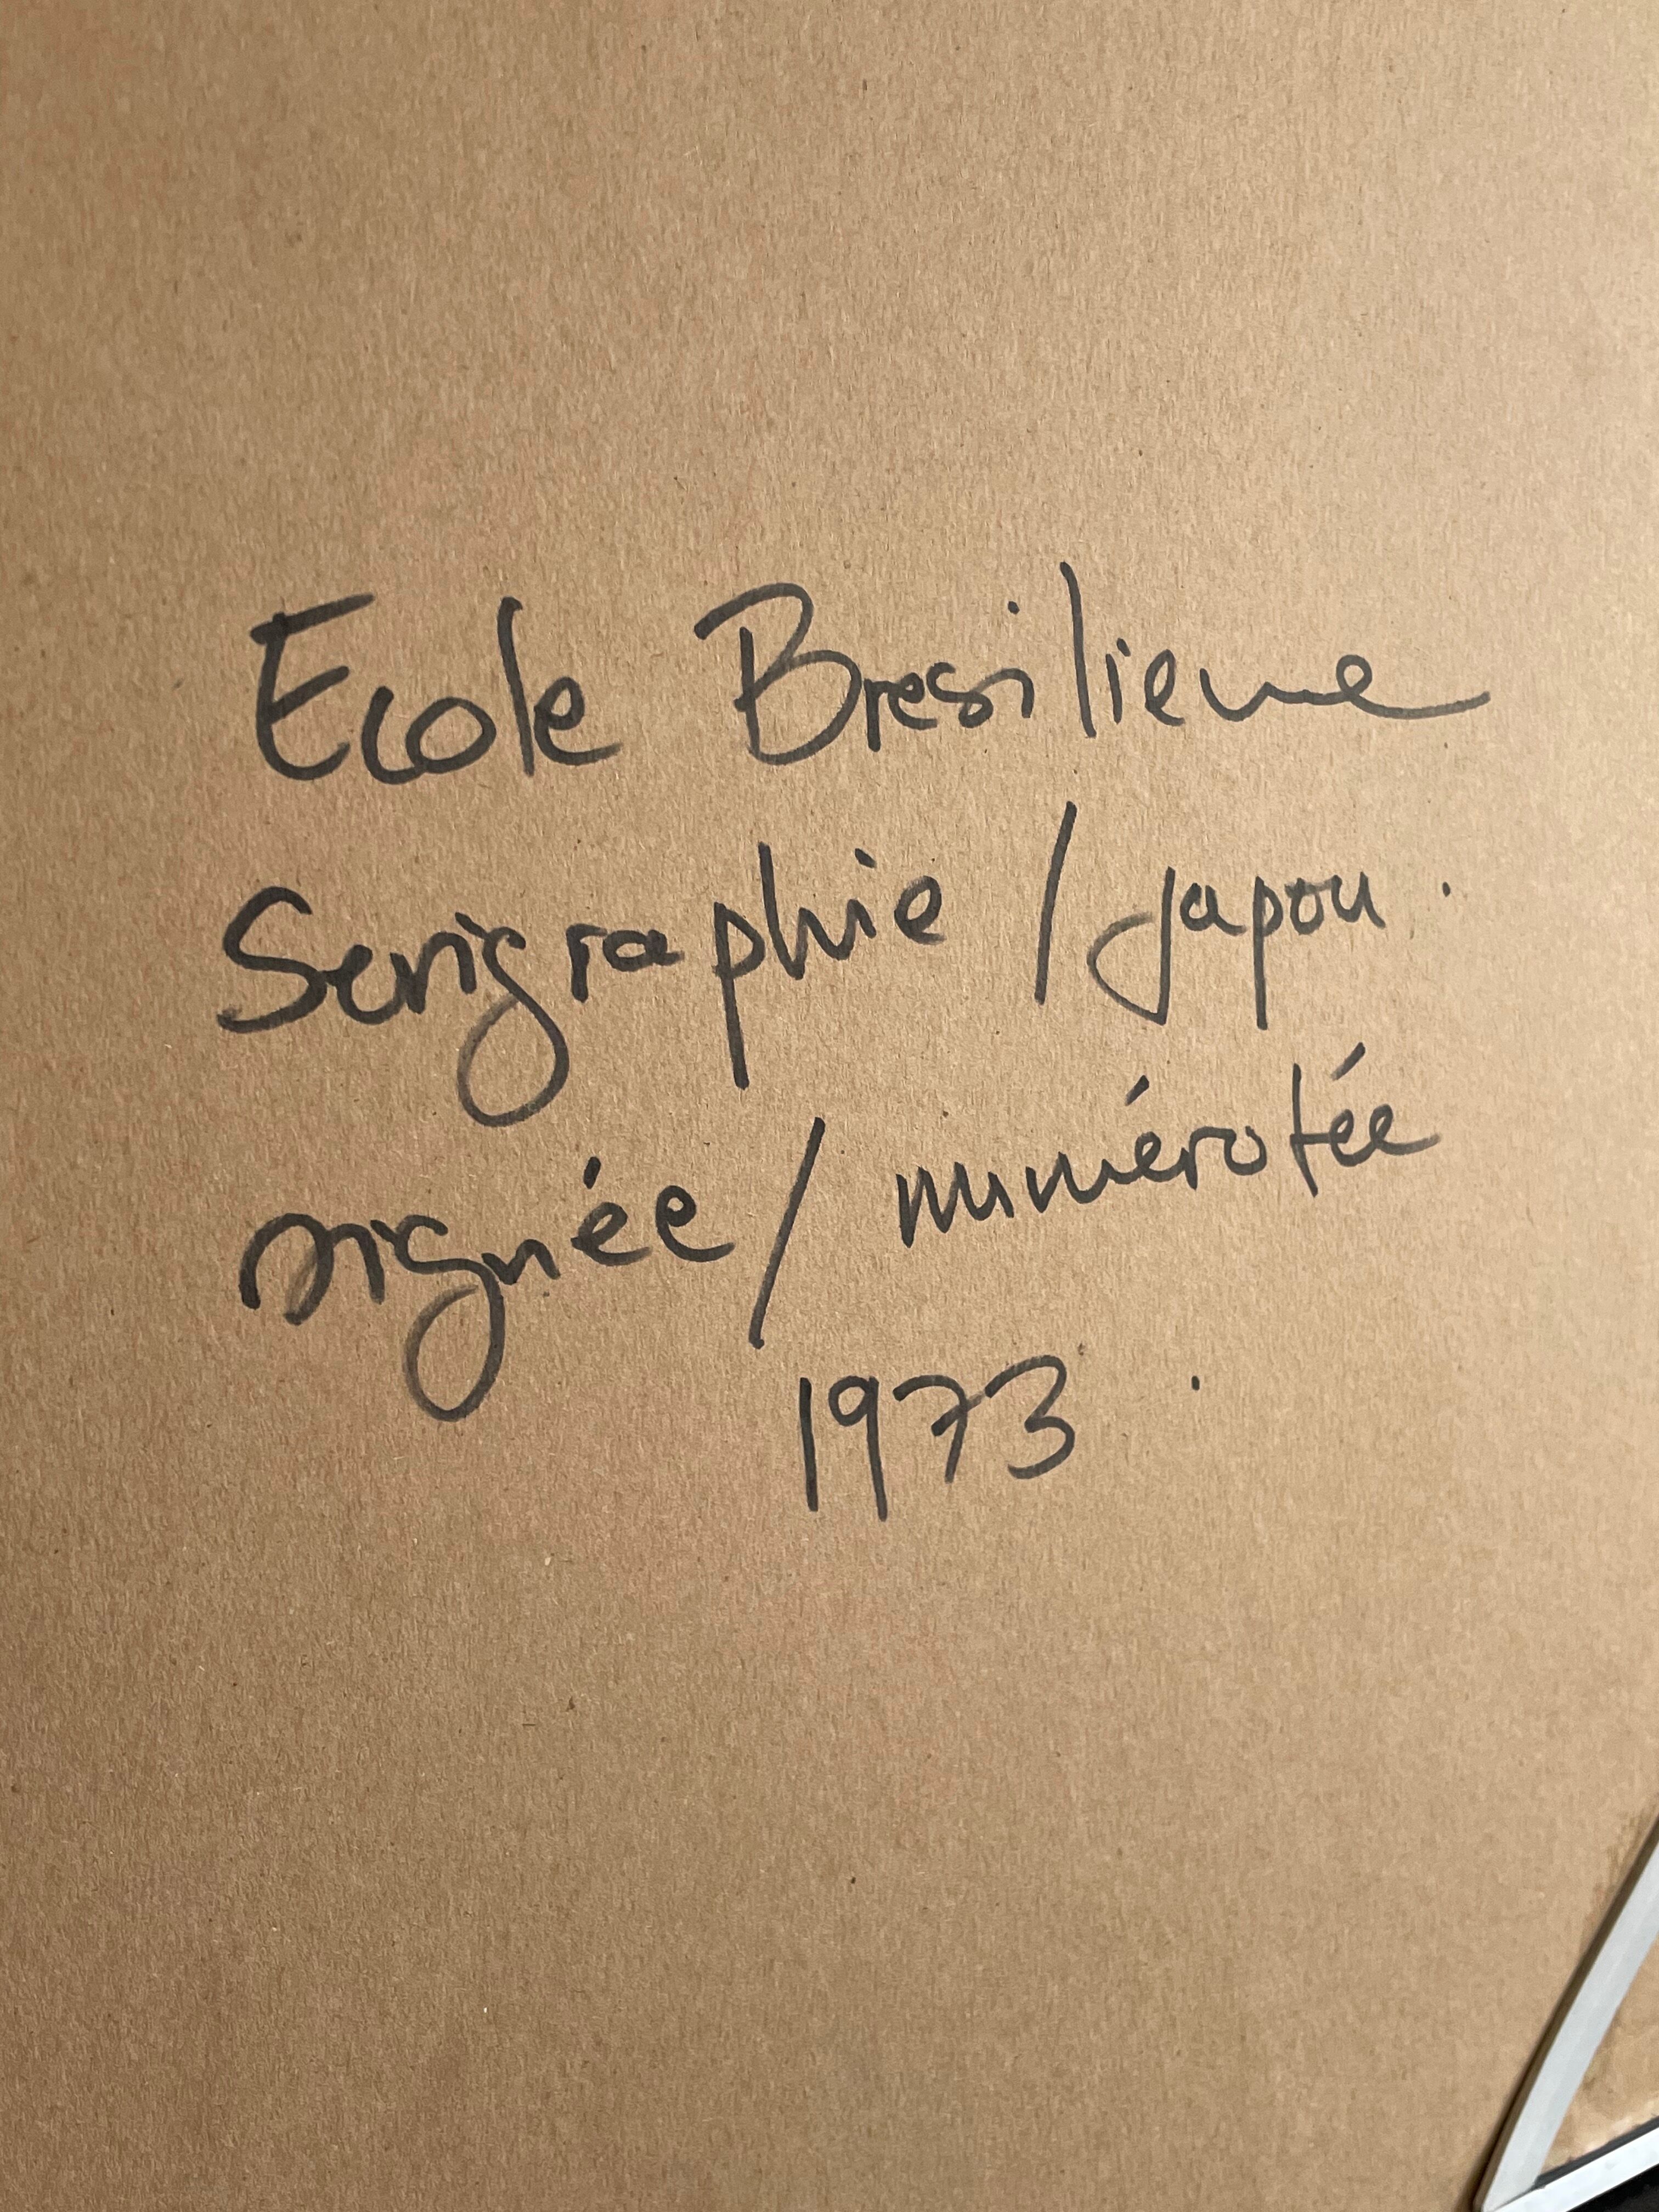 Ecole Bresiliene
Serigraphie / japon.
signée / numérotée
1973.